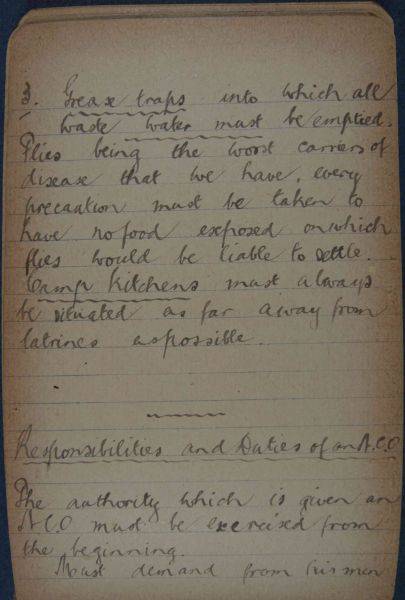 3. Grease traps into which all
waste water must be emptied.
Flies being the worst carriers of
disease that we have, every
precaution must be taken to
have no food exposed on which
flies would be liable to settle.
Camp Kitchens must always
be situated as far away from
latrines as possible.
Responsibilities and Duties of an N.C.O
The authority which is given an
N.C.O must be exercised from
the beginning.
Must demand from his men